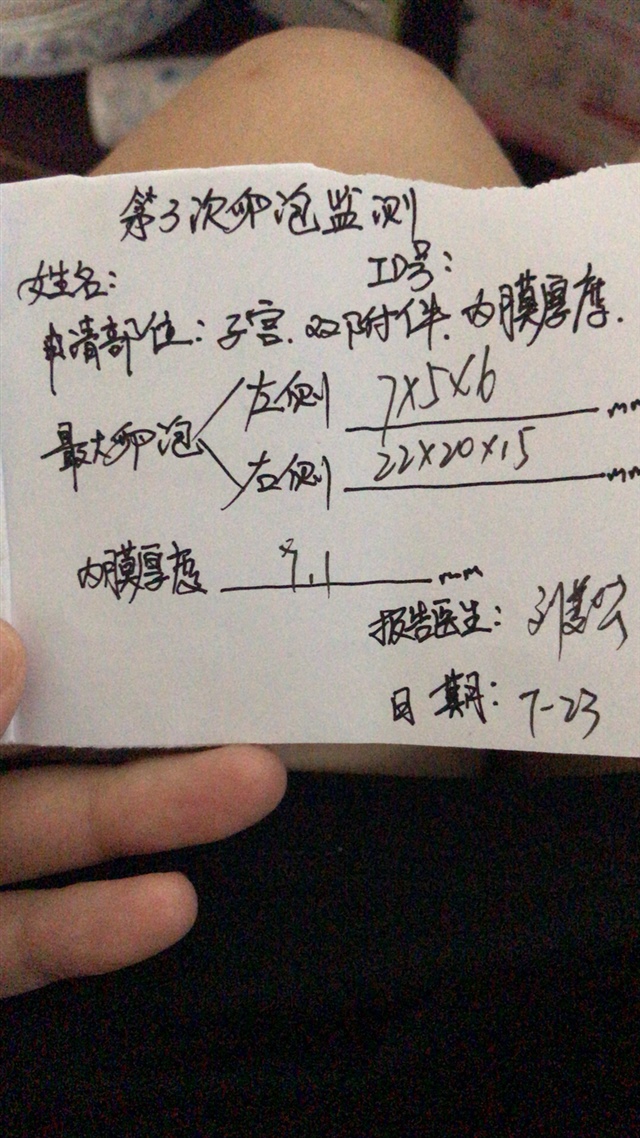 第3次卵泡监测
姓名: ID号:
申请部位: 子宫.双附件.内膜厚度.
最大卵泡 左侧 7×5×6 mm
右侧 22×20×15 mm
内膜厚度 7.1 mm
报告医生: 刘
日期: 7-23